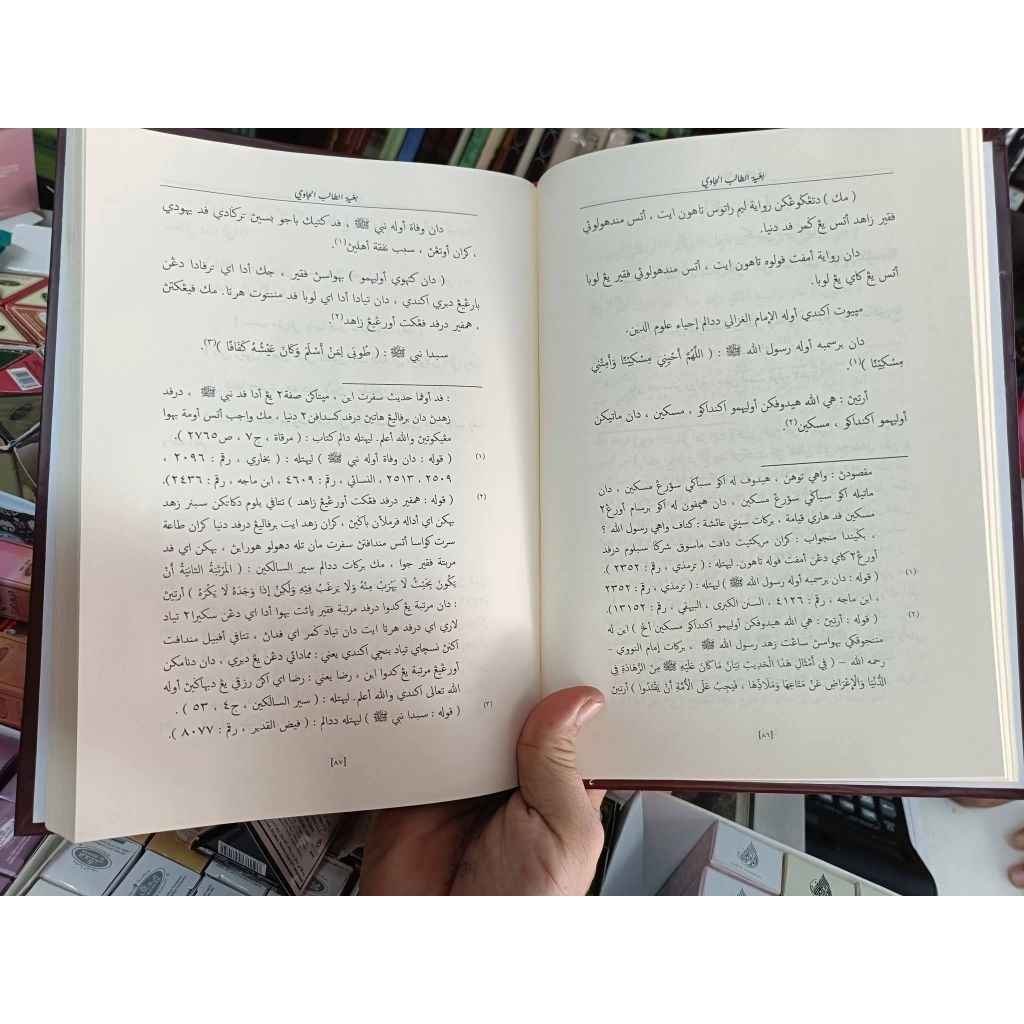 بغية الطالب الجاوي
( مك ) دتڠݢوڠكن رواية ليم راتوس تاهون ايت ، أتس مندهولوئي
فقير زاهد أتس يڠ ݢمر فد دنيا.
دان رواية أمفت فولوه تاهون ايت ، أتس مندهولوئي فقير يڠ لوبا
أتس يڠ كاي يڠ لوبا.
مپبوت اكندي أوله الإمام الغزالي ددالم إحياء علوم الدين.
دان برسبده أوله رسول الله ﷺ : ( اللَّهُمَّ أَحْيِنِي مِسْكِيْنًا وَأَمِتْنِي
مِسْكِيْنًا )(١).
أرتيڽ : هي الله هيدوفكن أوليهمو أكنداكو ، مسكين ، دان ماتيكن
أوليهمو أكنداكو ، مسكين(٢).
مقصودڽ : واهي توهن ، هيدوف له اكو سباݢي سؤرڠ مسكين ، دان
ماتيله اكو سباݢي سؤرڠ مسكين ، دان هيمفون له اكو برسام أورڠ٢
مسكين فد هاري قيامة ، بركات سيتي عائشة : كناف واهي رسول الله ؟
، بݢيندا منجواب : كران مريكئيت دافت ماسوق شرݢا سبلوم درفد
أورڠ٢ كاي دڠن أمفت فوله تاهون. ليهتله : ( ترمذي ، رقم : ٢٣٥٢ ).
(١) ( قوله : دان برسبده أوله رسول الله ﷺ ) ليهتله : ( ترمذي ، رقم : ٢٣٥٢
، ابن ماجه ، رقم : ٤١٢٦ ، السنن الكبرى ، البيهقي ، رقم : ١٣١٥٢).
(٢) ( قوله : أرتيڽ : هي الله هيدوفكن أوليهمو أكنداكو مسكين ألخ ) اين له
مننجوقكي بهواسڽ ساڠت زهد رسول الله ﷺ ، بركات إمام النووي -
رحمه الله – ( فِي أَمْثَالِ هَذَا الْحَدِيثِ بَيَانُ مَا كَانَ عَلَيْهِ ﷺ مِنَ الزَّهَادَةِ فِي
الدُّنْيَا وَالْإِعْرَاضِ عَنْ مَتَاعِهَا وَمَلَاذِّهَا ، فَيَجِبُ عَلَى الْأُمَّةِ أَنْ يَقْتَدُوا ) أرتيڽ
[٨٦]
بغية الطالب الجاوي
دان وفاة أوله نبي ﷺ ، فد كتيك باجو بسيڽ ترݢادي فد يهودي
، كران أوتڠڽ ، سبب نفقة أهلين(١).
( دان كتهوي أوليهمو ) بهواسڽ فقير ، جك أدا اي ترفادا دڠن
بارڠيڠ دبري اكندي ، دان تيادا أدا اي لوبا فد مننتوت هرتا. مك فيڠكتڽ
، همفير درفد فڠكت أورڠيڠ زاهد(٢).
سبدا نبي ﷺ : ( طُوبَى لِمَنْ أَسْلَمَ وَكَانَ عَيْشُهُ كَفَافًا )(٣).
: فد أوفما حديث سفرت اين ، مپتاكن صفة٢ يڠ أدا فد نبي ﷺ ، درفد
زهدڽ دان برفاليڠ هاتين درفد كسدافن٢ دنيا ، مك واجب أتس أومة بهوا
مڠيكوتين والله أعلم. ليهتله دالم كتاب : ( مرقاة ، ج٧ ، ص٢٧٦٥ ).
(١) ( قوله : دان وفاة أوله نبي ﷺ ) ليهتله : ( بخاري ، رقم : ٢٠٩٦ ،
٢٥٠٩ ، ٢٥١٣ ، النسائي ، رقم : ٤٦٠٩ ، ابن ماجه ، رقم : ٢٤٣٦).
(٢) ( قوله : همفير درفد فڠكت أورڠيڠ زاهد ) تتافي بلوم دكاتكن سبنر زهد
بهكن اي أداله فرملأن باݢين ، كران زهد ايت برفاليڠ درفد دنيا كران طاعة
سرت كواسا أتس مندافتڽ سفرت مان تله دهولو هوراين ، بهكن اي فد
مرتبة فقير جوا ، مك بركات ددالم سير السالكين : ( الْمَرْتَبَةُ الثَّانِيَةُ أَنْ
يَكُونَ بِحَيْثُ لَا يَهْرَبُ مِنْهُ وَلَا يَرْغَبُ فِيْهِ وَلَكِنْ إِذَا وَجَدَهُ لَا يَكْرَهُ ) أرتيڽ
: دان مرتبة يڠ كدوا درفد مرتبة فقير يائت بهوا أدا اي دڠن سكيرا٢ تياد
لاري اي درفد هرتا ايت دان تياد ݢمر اي فداڽ ، تتافي أفبيل مندافت
اكن نسچاي تياد بنچي اكندي يعني : ممادائي دڠن يڠ دبري ، دان دنامكن
أورڠيڠ مرتبة يڠ كدوا اين ، رضا يعني : رضا اي اكن رزقي يڠ دبهاݢين أوله
الله تعالى اكندي والله أعلم. ليهتله : ( سير السالكين ، ج٤ ، ٥٣ ) .
(٣) ( قوله : سبدا نبي ﷺ ) ليهتله ددالم : ( فيض القدير ، رقم : ٨٠٧٧ ).
[٨٧]